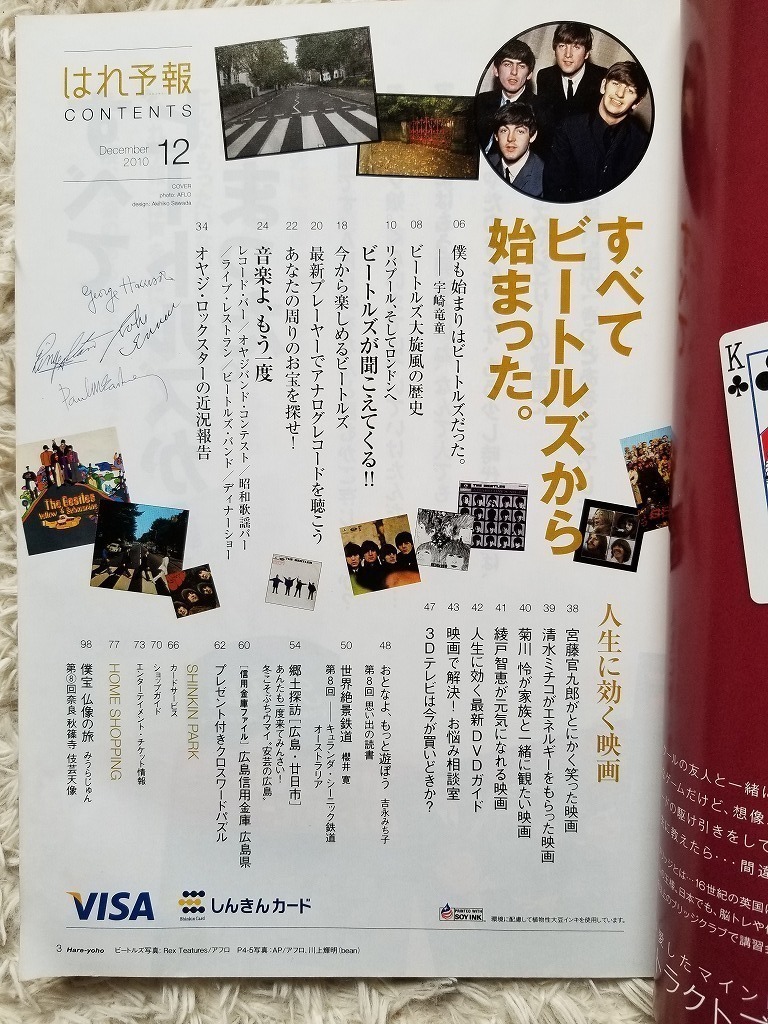 はれ予報
CONTENTS
December
2010
12
COVER
photo: AFLO
design: Akihiko Sawada
すべて
ビートルズから
始まった。
06 僕も始まりはビートルズだった。
——宇崎竜童
08 ビートルズ大旋風の歴史
10 リバプール、そしてロンドンへ
ビートルズが聞こえてくる!!
18 今から楽しめるビートルズ
20 最新プレーヤーでアナログレコードを聴こう
22 あなたの周りのお宝を探せ!
24 音楽よ、もう一度
レコード・バー/オヤジバンド・コンテスト/昭和歌謡バー
/ライブ・レストラン/ビートルズ・バンド/ディナーショー
34 オヤジ・ロックスターの近況報告
George Harrison
Paul McCartney
The Beatles
Yellow Submarine
THE BEATLES
人生に効く映画
38 宮藤官九郎がとにかく笑った映画
39 清水ミチコがエネルギーをもらった映画
40 菊川 怜が家族と一緒に観たい映画
41 綾戸智恵が元気になれる映画
42 人生に効く最新DVDガイド
43 映画で解決!お悩み相談室
47 3Dテレビは今が買いどきか?
48 おとなよ、もっと遊ぼう 吉永みち子
第8回 思い出の読書
50 世界絶景鉄道 櫻井 寛
第8回——キュランダ・シーニック鉄道
オーストラリア
54 郷土探訪[広島・廿日市]
あんたも一度来てみんさい!
冬こそぶちウマイ“安芸の広島”
60 [信用金庫ファイル]広島信用金庫 広島県
62 プレゼント付きクロスワードパズル
SHINKIN PARK
66 カードサービス
70 ショップガイド
73 エンターテイメント・チケット情報
77 HOME SHOPPING
98 僕宝 仏像の旅 みうらじゅん
第⑧回奈良 秋篠寺 伎芸天像
VISA
Shinkin Card
しんきんカード
PRINTED WITH
SOY INK
環境に配慮して植物性大豆インキを使用しています。
3 Hare-yoho ビートルズ写真:Rex Teatures/アフロ P4-5写真:AP/アフロ、川上輝明(bean)
K
ールの友人と一緒に
ゲームだけど、想像
ドの駆け引きをして
に教えたら・・・間違
ッジとは…16世紀の英国に